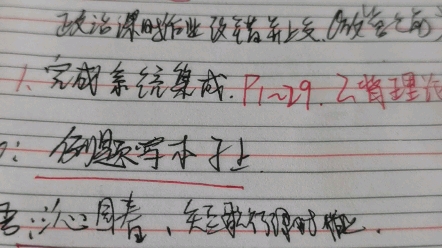 政治课时作业改错并上交(放学之前)
1. 完成系统集成. P1~29. 乙肾理
: 例题写本子上
: 沁园春、短歌行课时作业.